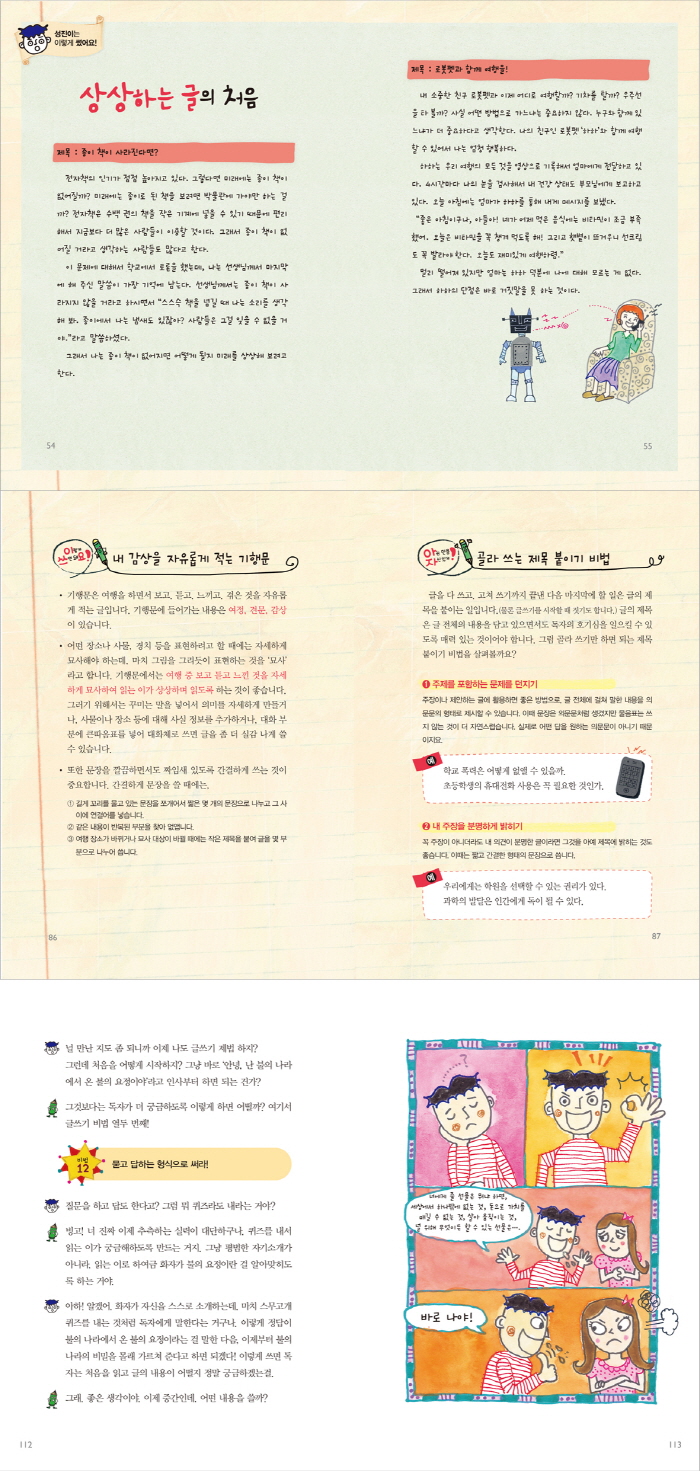 성진이는
이렇게 썼어요!
상상하는 글의 처음
제목 : 종이 책이 사라진다면?
전자책의 인기가 점점 높아지고 있다. 그렇다면 미래에는 종이 책이
없어질까? 미래에는 종이로 된 책을 보려면 박물관에 가야만 하는 걸
까? 전자책은 수백 권의 책을 작은 기계에 넣을 수 있기 때문에 편리
해서 지금보다 더 많은 사람들이 이용할 것이다. 그래서 종이 책이 없
어질 거라고 생각하는 사람들도 많다고 한다.
이 문제에 대해서 학교에서 토론을 했는데, 나는 선생님께서 마지막
에 해 주신 말씀이 가장 기억에 남는다. 선생님께서는 종이 책이 사
라지지 않을 거라고 하시면서 “스스슥 책을 넘길 때 나는 소리를 생각
해 봐. 종이에서 나는 냄새도 있잖아? 사람들은 그걸 잊을 수 없을 거
야.”라고 말씀하셨다.
그래서 나는 종이 책이 없어지면 어떻게 될지 미래를 상상해 보려고
한다.
54
제목 : 로봇펫과 함께 여행을!
내 소중한 친구 로봇펫과 이제 어디로 여행할까? 기차를 탈까? 우주선
을 타 볼까? 사실 어떤 방법으로 가느냐는 중요하지 않다. 누구와 함께 있
느냐가 더 중요하다고 생각한다. 나의 친구인 로봇펫 ‘하하’와 함께 여행
할 수 있어서 나는 엄청 행복하다.
하하는 우리 여행의 모든 것을 영상으로 기록해서 엄마에게 전달하고 있
다. 4시간마다 나의 눈을 검사해서 내 건강 상태도 부모님에게 보고하고
있다. 오늘 아침에는 엄마가 하하를 통해 내게 메시지를 보냈다.
“좋은 아침이구나, 아들아! 네가 어제 먹은 음식에는 비타민이 조금 부족
했어. 오늘은 비타민을 꼭 챙겨 먹도록 해! 그리고 햇볕이 뜨거우니 선크림
도 꼭 발라야 한다. 오늘도 재미있게 여행하렴.”
멀리 떨어져 있지만 엄마는 하하 덕분에 나에 대해 모르는 게 없다.
그래서 하하의 단점은 바로 거짓말을 못 하는 것이다.
55
내 감상을 자유롭게 적는 기행문
• 기행문은 여행을 하면서 보고, 듣고, 느끼고, 겪은 것을 자유롭
게 적는 글입니다. 기행문에 들어가는 내용은 여정, 견문, 감상
이 있습니다.
• 어떤 장소나 사물, 경치 등을 표현하려고 할 때에는 자세하게
묘사해야 하는데, 마치 그림을 그리듯이 표현하는 것을 ‘묘사’
라고 합니다. 기행문에서는 여행 중 보고 듣고 느낀 것을 자세
하게 묘사하여 읽는 이가 상상하며 읽도록 하는 것이 좋습니다.
그러기 위해서는 꾸미는 말을 넣어서 의미를 자세하게 만들거
나, 사물이나 장소 등에 대해 사실 정보를 추가하거나, 대화 부
분에 큰따옴표를 넣어 대화체로 쓰면 글을 좀 더 실감 나게 쓸
수 있습니다.
• 또한 문장을 깔끔하면서도 짜임새 있도록 간결하게 쓰는 것이
중요합니다. 간결하게 문장을 쓸 때에는,
① 길게 꼬리를 물고 있는 문장을 쪼개어서 짧은 몇 개의 문장으로 나누고 그 사
이에 연결어를 넣습니다.
② 같은 내용이 반복된 부분을 찾아 없앱니다.
③ 여행 장소가 바뀌거나 묘사 대상이 바뀔 때에는 작은 제목을 붙여 글을 몇 부
분으로 나누어 씁니다.
86
골라 쓰는 제목 붙이기 비법
글을 다 쓰고, 고쳐 쓰기까지 끝낸 다음 마지막에 할 일은 글의 제
목을 붙이는 일입니다.(물론 글쓰기를 시작할 때 짓기도 합니다.) 글의 제목
은 글 전체의 내용을 담고 있으면서도 독자의 호기심을 일으킬 수 있
도록 매력 있는 것이어야 합니다. 그럼 골라 쓰기만 하면 되는 제목
붙이기 비법을 살펴볼까요?
❶ 주제를 포함하는 문제를 던지기
주장이나 제안하는 글에 활용하면 좋은 방법으로, 글 전체에 걸쳐 말한 내용을 의
문문의 형태로 제시할 수 있습니다. 이때 문장은 의문문처럼 생겼지만 물음표는 쓰
지 않는 것이 더 자연스럽습니다. 실제로 어떤 답을 원하는 의문문이 아니기 때문
이지요.
예
학교 폭력은 어떻게 없앨 수 있을까.
초등학생의 휴대전화 사용은 꼭 필요한 것인가.
❷ 내 주장을 분명하게 밝히기
꼭 주장이 아니더라도 내 의견이 분명한 글이라면 그것을 아예 제목에 밝히는 것도
좋습니다. 이때는 짧고 간결한 형태의 문장으로 씁니다.
예
우리에게는 학원을 선택할 수 있는 권리가 있다.
과학의 발달은 인간에게 독이 될 수 있다.
87
널 만난 지도 좀 되니까 이제 나도 글쓰기 제법 하지?
그런데 처음을 어떻게 시작하지? 그냥 바로 ‘안녕, 난 불의 나라
에서 온 불의 요정이야’라고 인사부터 하면 되는 건가?
그것보다는 독자가 더 궁금하도록 이렇게 하면 어떨까? 여기서
글쓰기 비법 열두 번째!
비법
12
묻고 답하는 형식으로 써라!
질문을 하고 답도 한다고? 그럼 뭐 퀴즈라도 내라는 거야?
빙고! 너 진짜 이제 추측하는 실력이 대단하구나. 퀴즈를 내서
읽는 이가 궁금해하도록 만드는 거지. 그냥 평범한 자기소개가
아니라, 읽는 이로 하여금 화자가 불의 요정이란 걸 알아맞히도
록 하는 거야.
아하! 알겠어. 화자가 자신을 스스로 소개하는데, 마치 스무고개
퀴즈를 내는 것처럼 독자에게 말한다는 거구나. 이렇게 정답이
불의 나라에서 온 불의 요정이라는 걸 말한 다음, 이제부터 불의
나라의 비밀을 몰래 가르쳐 준다고 하면 되겠다! 이렇게 쓰면 독
자는 처음을 읽고 글의 내용이 어떨지 정말 궁금하겠는걸.
그래, 좋은 생각이야. 이제 중간인데, 어떤 내용을 쓸까?
112
너에게 줄 선물은 뭐냐 하면,
세상에서 하나밖에 없는 것, 돈으로 가치를
매길 수 없는 것, 살아 움직이는 것,
널 위해 무엇이든 할 수 있는 선물은….
바로 나야!
113